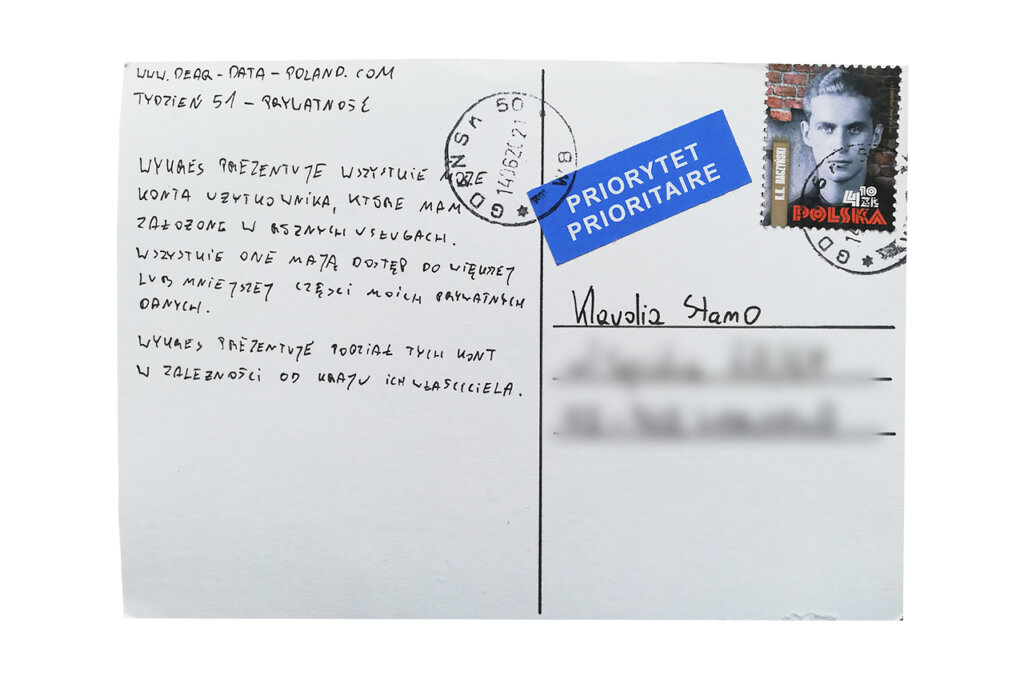 WWW.DEAR-DATA-POLAND.COM
TYDZIEŃ 51 - PRYWATNOŚĆ
WYKRES PREZENTUJE WSZYSTKIE MOJE
KONTA UŻYTKOWNIKA, KTÓRE MAM
ZAŁOŻONE W RÓŻNYCH USŁUGACH.
WSZYSTKIE ONE MAJĄ DOSTĘP DO WIĘKSZEJ
LUB MNIEJSZEJ CZĘŚCI MOICH PRYWATNYCH
DANYCH.
WYKRES PREZENTUJE PODZIAŁ TYCH KONT
W ZALEŻNOŚCI OD KRAJU ICH WŁAŚCICIELA.
GDAŃSK 50
WB
PRIORYTET
PRIORITAIRE
K.K. BACZYŃSKI
4 10 ZŁ
POLSKA
Klaudia Stano